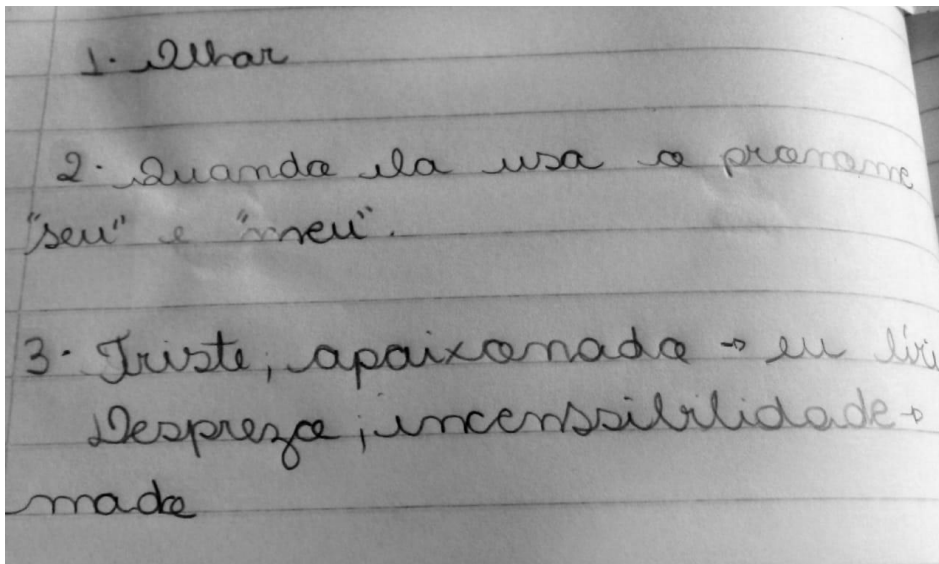 1. Olhar
2. Quando ela usa o pronome
"seu" e "meu".
3. Triste; apaixonado → eu líri
Desprezo; incenssibilidade →
mado